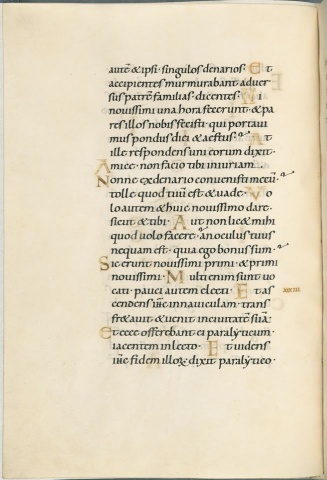 autē & ipsi · singulos denarios · Et
accipientes murmurabant adver
sus patrē familias · dicentes · hi
novissimi una hora fecerunt · & pa
res illos nobis fecisti · qui portavi
mus pondus diei & aestus · At
ille respondens uni eorum dixit ·
amice · non facio tibi iniuriam ·
Nonne ex denario convenisti mecū
tolle quod tuū est & vade · Vo
lo autem & huic novissimo dare ·
sicut & tibi · Aut non licet mihi
quod volo facere · an oculus tuus
nequam est · quia ego bonus sum ·
Sic erunt novissimi primi · & primi
novissimi · Multi enim sunt vo
cati · pauci autem electi · Et as xxviii
cendens iħe in naviculam · trans
fr&avit & venit in civitatē suā ·
et ecce offerebant ei paralyticum ·
iacentem in lecto · Et videns
iħe fidem illoꝝ · dixit paralytico ·